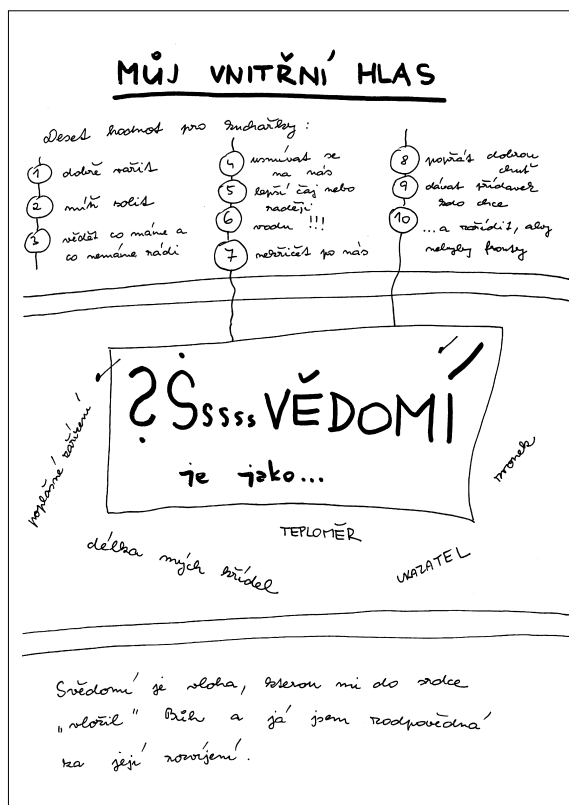 MŮJ VNITŘNÍ HLAS
Deset hodnot pro kuchařky:
1 dobře vařit
2 míň solit
3 vědět co máme a
co nemáme rádi
4 usmívat se
na nás
5 lepší čaj nebo
6 raději
vodu !!!
7 nekřičet po nás
8 popřát dobrou
chuť
9 dávat přídavek
kdo chce
10 ...a zařídit, aby
nebyly fronty
?Sssss VĚDOMÍ
je jako...
poplašné zařízení
zvonek
TEPLOMĚR
délka mých křídel
UKAZATEL
Svědomí je vloha, kterou mi do srdce
„vložil" Bůh a já jsem zodpovědná
za její rozvíjení.